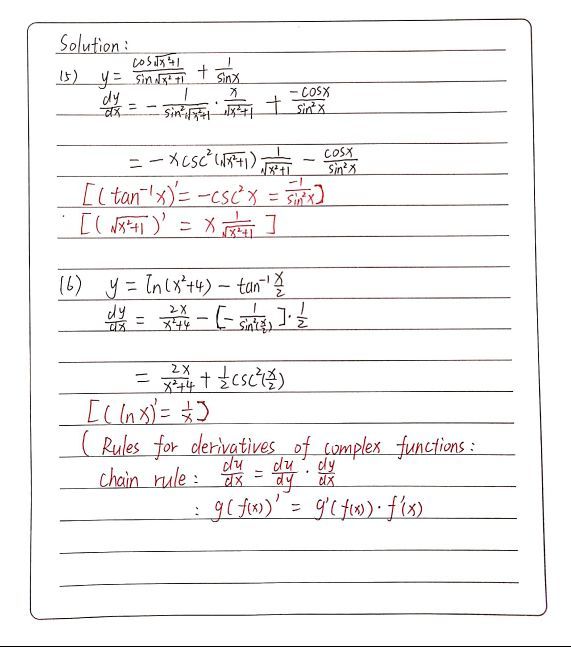 Solution:
15) y = cos√(x²+1) / sin√(x²+1) + 1/sinx
dy/dx = - 1/sin²√(x²+1) · x/√(x²+1) + -cosx/sin²x
= - x csc²(√(x²+1)) 1/√(x²+1) - cosx/sin²x
[(tan⁻¹x)' = -csc²x = -1/sin²x]
[(√(x²+1))' = x 1/√(x²+1) ]
16) y = ln(x²+4) - tan⁻¹ x/2
dy/dx = 2x/(x²+4) - [- 1/sin²(x/2)] · 1/2
= 2x/(x²+4) + 1/2 csc²(x/2)
[(ln x)' = 1/x]
( Rules for derivatives of complex functions:
chain rule: du/dx = du/dy · dy/dx
: g(f(x))' = g'(f(x)) · f'(x)